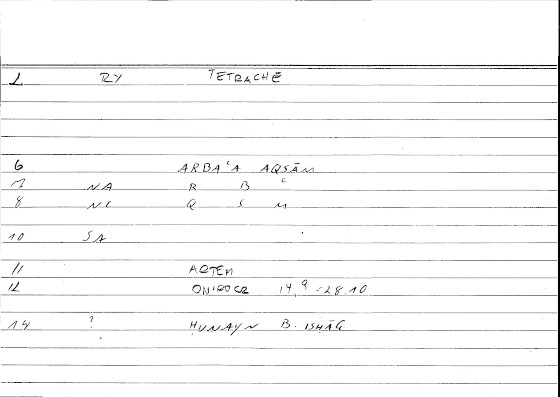 1 RY TETRACHĒ
6 ARBAʿA AQSĀM
7 NA R B ʿ
8 NC Q S M
10 SA
11 ARTEM
12 ONIROCR 14,9 = 28.10
14 ? ḤUNAYN B. ISḤĀQ